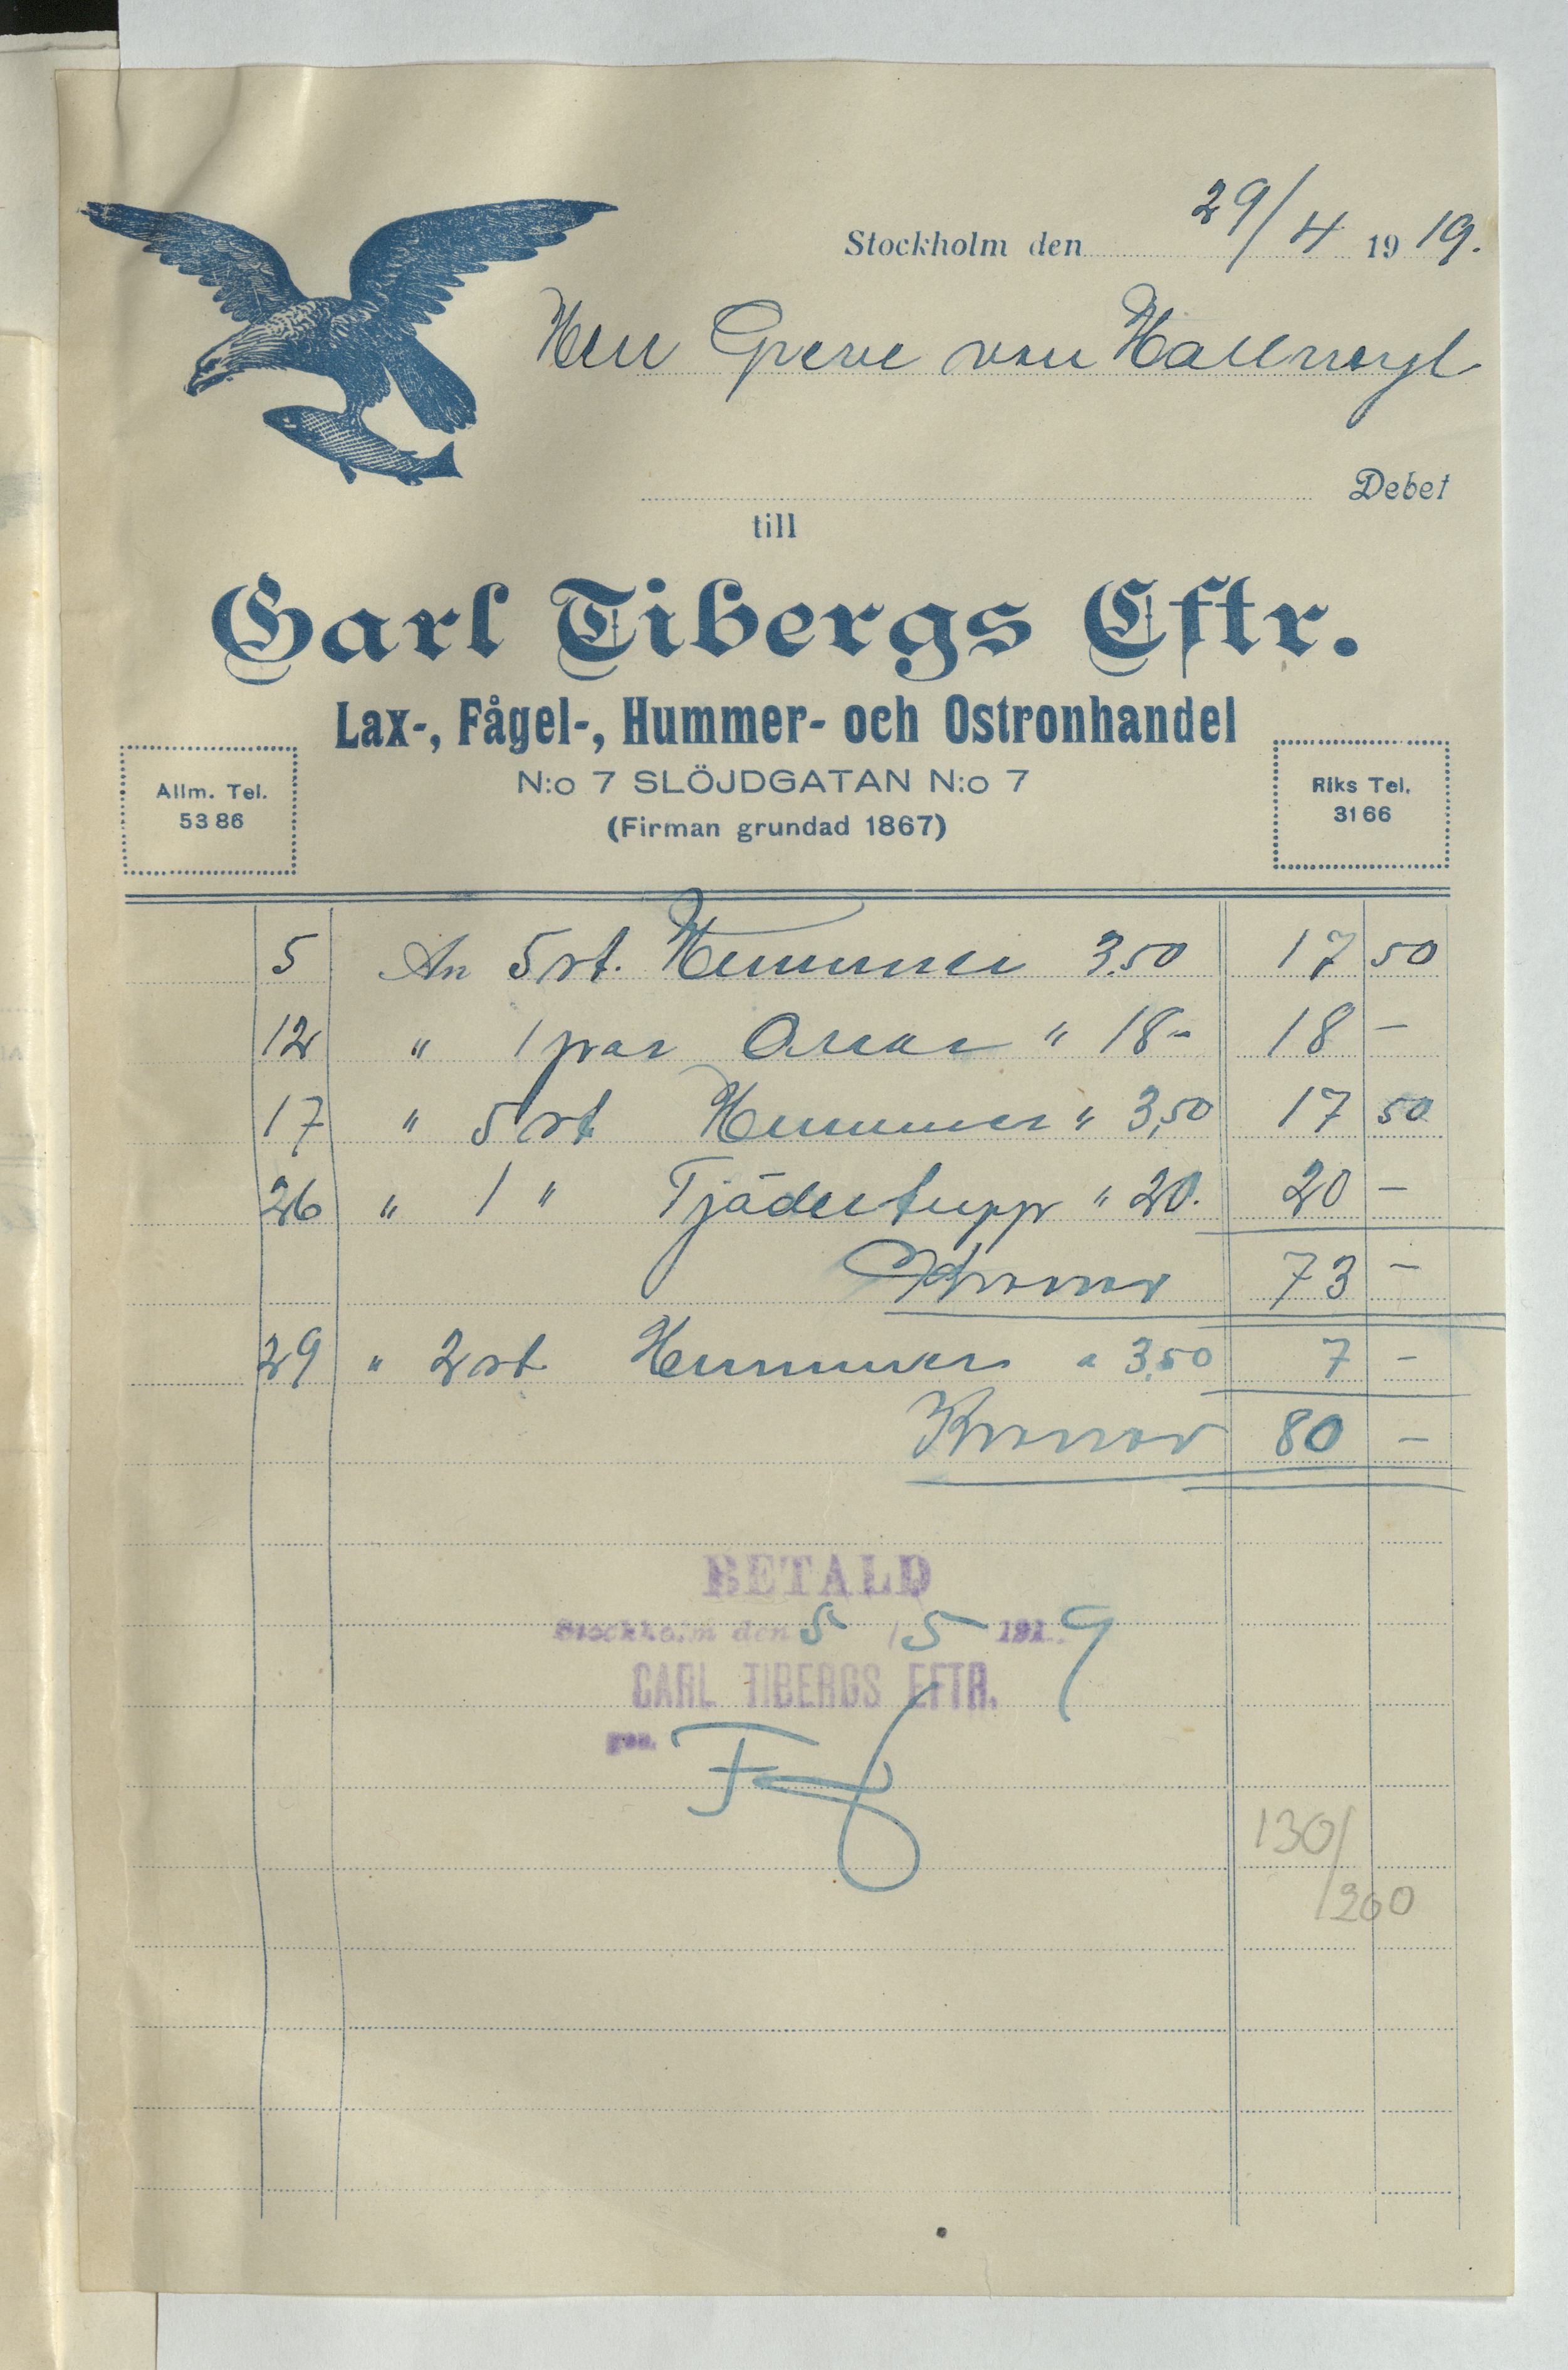 Stockholm den 29/4 1919.
Herr Greve von Hallwyl
Debet
till
Carl Tibergs Eftr.
Lax-, Fågel-, Hummer- och Ostronhandel
N:o 7 SLÖJDGATAN N:o 7
(Firman grundad 1867)
Allm. Tel.
53 86
Riks Tel.
31 66
5 An 5 st. Hummer 3.50 17 50
12 " 1 par Orrar " 18- 18 -
17 " 5 st Hummer " 3,50 17 50
26 " 1 " Tjädertupp " 20. 20 -
Kronor 73 -
29 " 2 st. Hummer " 3.50 7 -
Kronor 80 -
BETALD
Stockholm den 5 / 5 191 9
CARL TIBERGS EFTR.
130/
/200